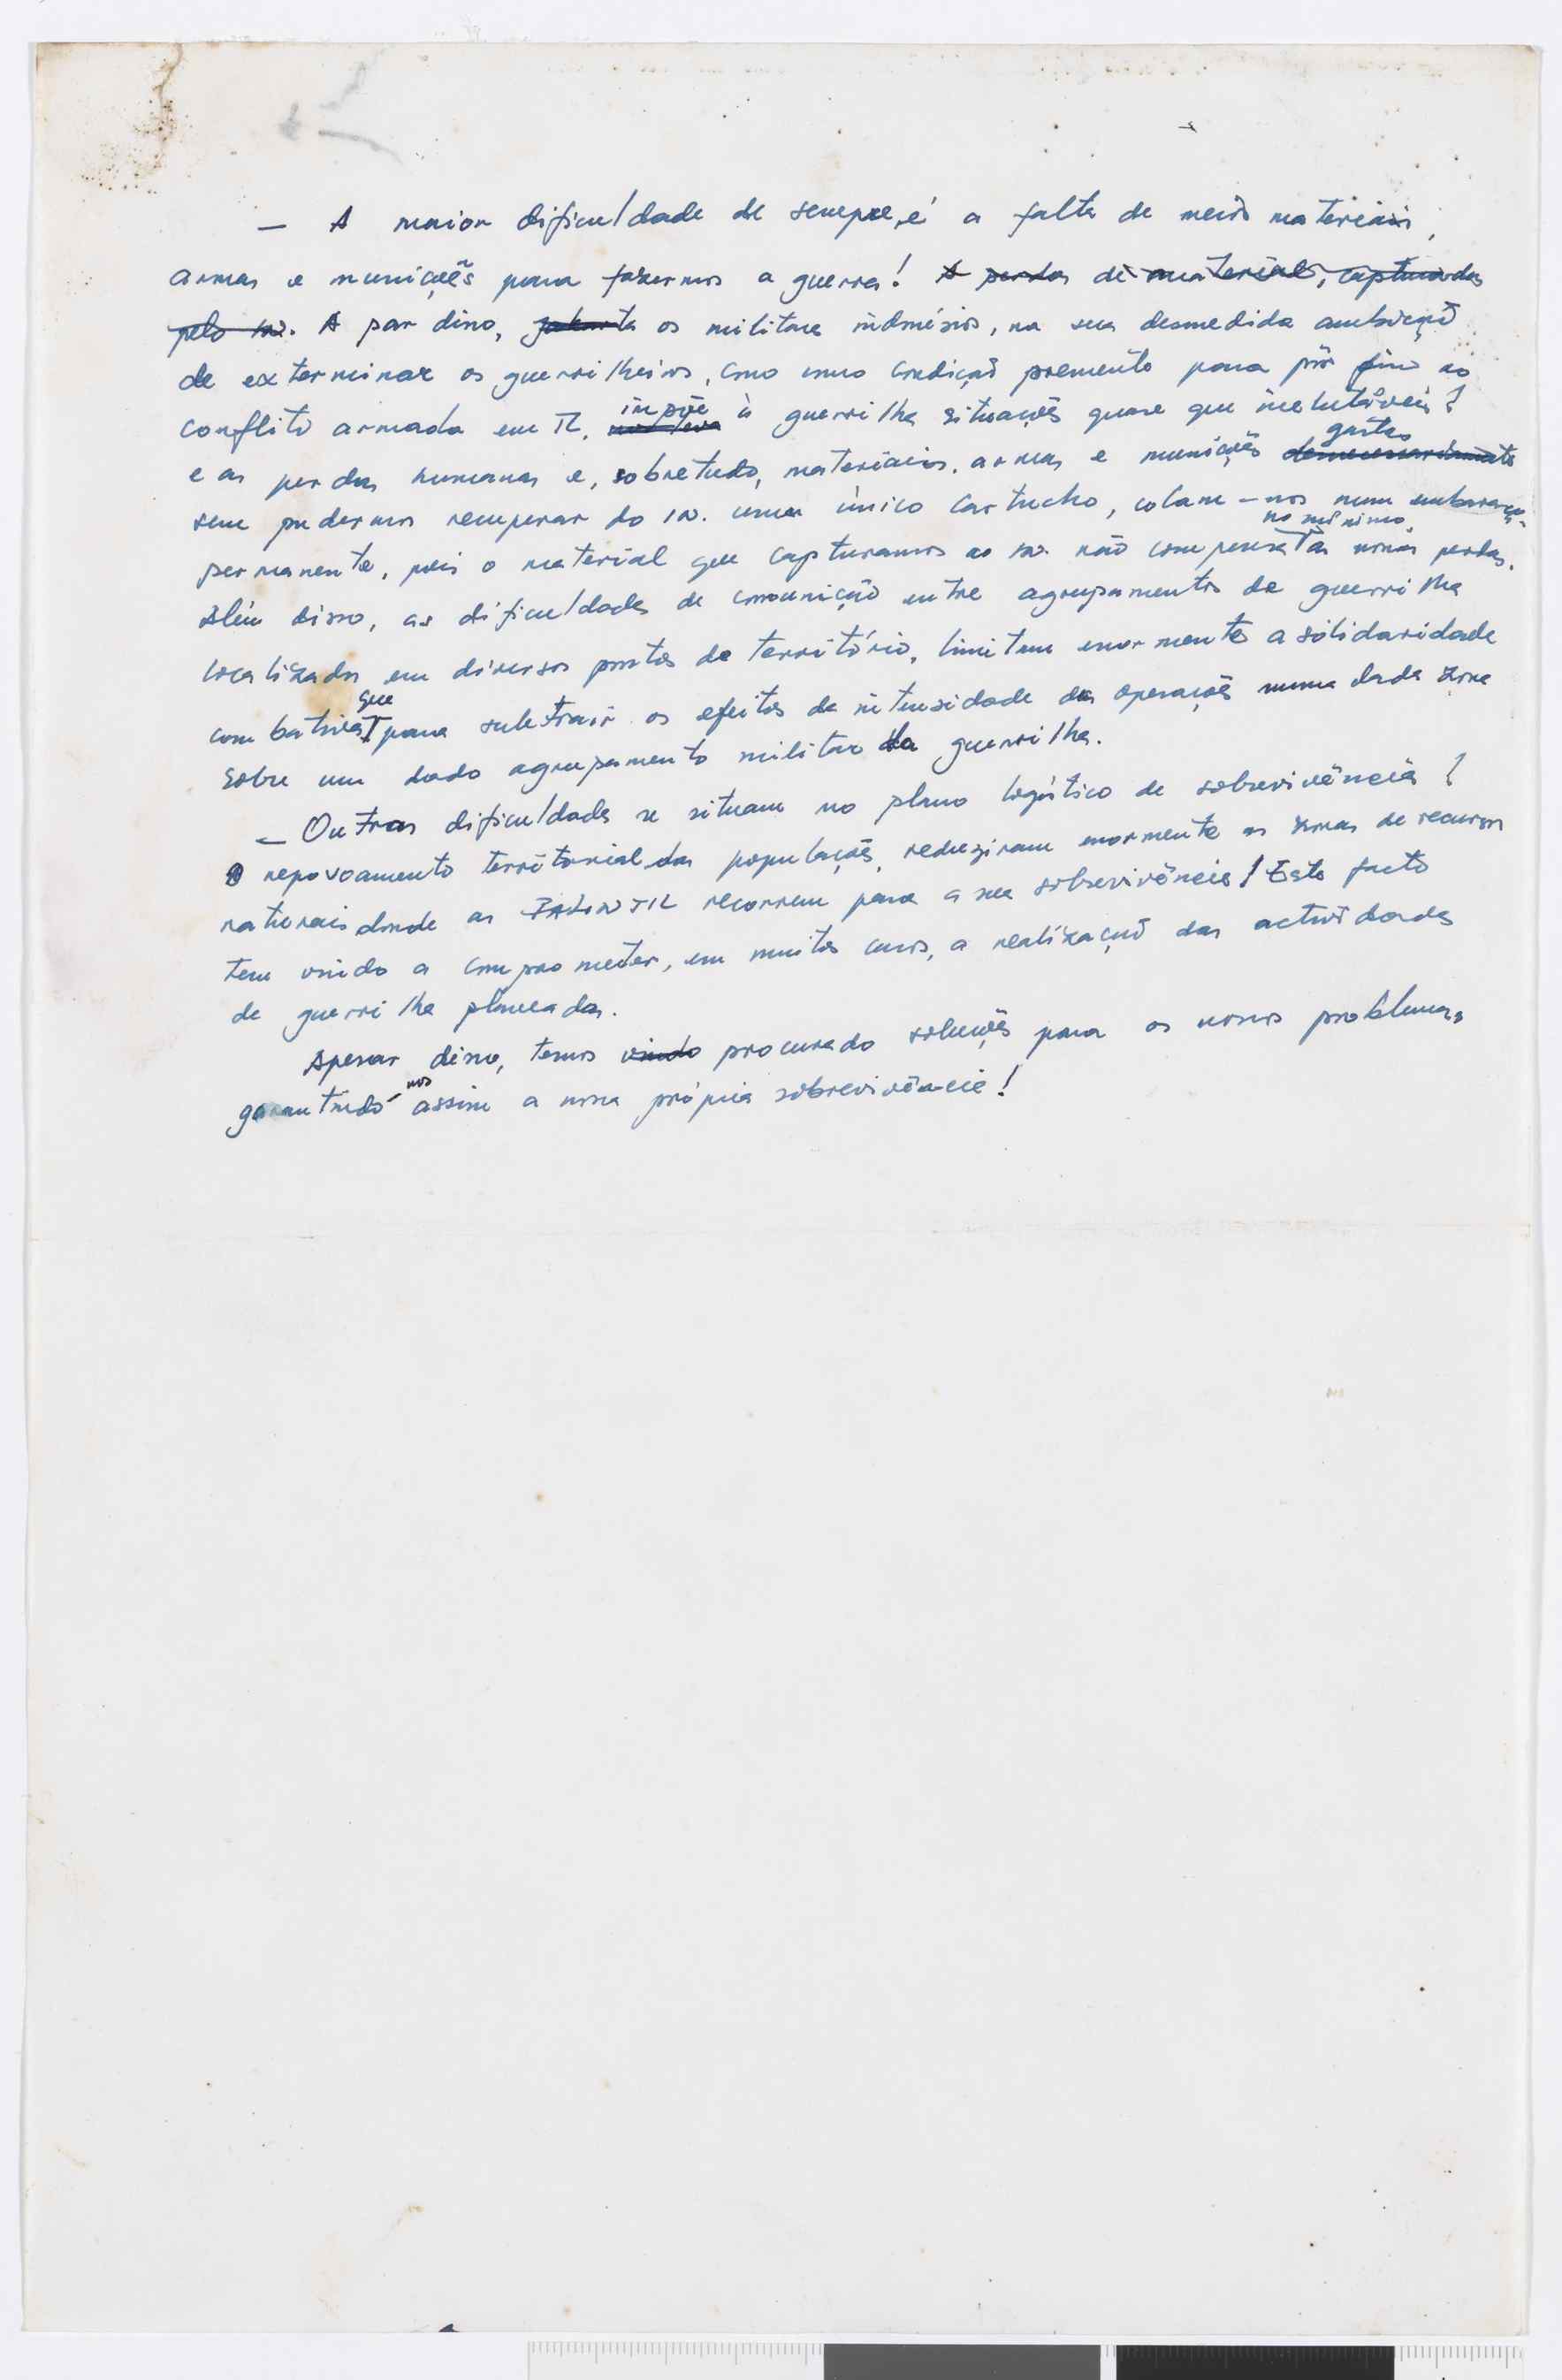 — A maior dificuldade de sempre, é a falta de meios materiais,
armas e munições para fazermos a guerra! A perdas de material, capturadas
pelo in. A par disso, jakarta os militares indonésios, na sua desmedida ambição
de exterminar os guerrilheiros, como uma condição premente para pôr fim ao
conflito armada em TL, impõe à guerrilha situações quase que inelutáveis!
e as perdas humanas e, sobretudo, materiais, armas e munições gastas desnecessariamente
sem pudermos recuperar do in. um único cartucho, colam-nos num embaraço
permanente, pois o material que capturamos ao in. não compensa no mínimo, as nossas perdas.
Além disso, as dificuldades de comunicação entre agrupamentos de guerrilha
localizados em diversos pontos do território, limitam enormente a solidariedade
combativa que para subtrair os efeitos da intensidade das operações numa dada zona
sobre um dado agrupamento militar da guerrilha.
— Outras dificuldades se situam no plano logístico de sobrevivência!
O repovoamento territorial das populações, reduziram enormente as zonas de recursos
naturais donde as FALINTIL recorrem para a sua sobrevivência! Este facto
tem vindo a comprometer, em muitos casos, a realização das actividades
de guerrilha planeadas.
Apesar disso, temos vindo procurado soluções para os nossos problemas,
garantindo-nos assim a nossa própria sobrevivência!